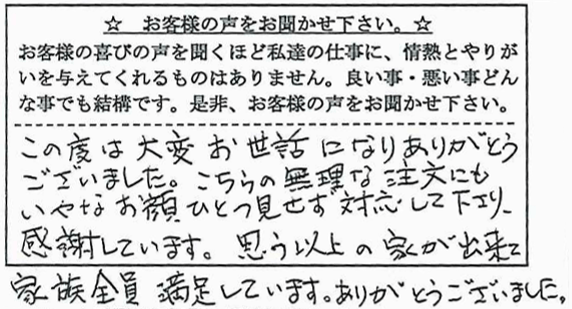 ☆ お客様の声をお聞かせ下さい。☆
お客様の喜びの声を聞くほど私達の仕事に、情熱とやりが
いを与えてくれるものはありません。良い事・悪い事どん
な事でも結構です。是非、お客様の声をお聞かせ下さい。
この度は大変お世話になりありがとう
ございました。こちらの無理な注文にも
いやなお顔ひとつ見せず対応して下さり、
感謝しています。思う以上の家が出来て
家族全員満足しています。ありがとうございました。